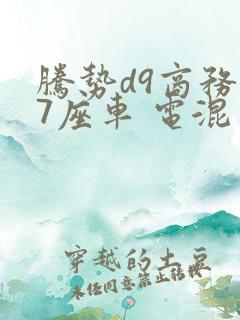 騰勢d9商務
7座車 電混
穿越的土豆
未任同意禁止轉載